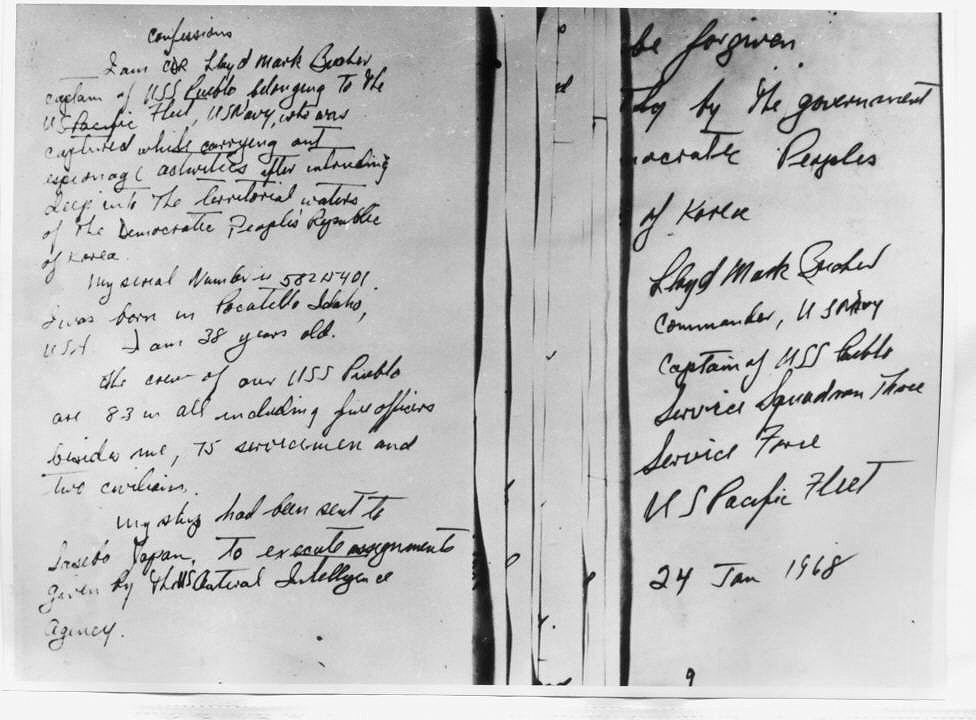 confessions
I am CDR Lloyd Mark Bucher
captain of USS Pueblo belonging to the
US Pacific Fleet, US Navy, who was
captured while carrying out
espionage activities after intruding
deep into the territorial waters
of the Democratic Peoples Republic
of Korea.
My serial Number is 58215401.
I was born in Pocatello Idaho,
USA. I am 38 years old.
The crew of our USS Pueblo
are 83 in all including five officers
besides me, 75 servicemen and
two civilians.
My ship had been sent to
Sasebo Japan, to execute assignments
given by the US Central Intelligence
Agency.
be forgiven
by the government
ocratic Peoples
of Korea
Lloyd Mark Bucher
Commander, US Navy
Captain of USS Pueblo
Service Squadron Three
Service Force
US Pacific Fleet
24 Jan 1968
9